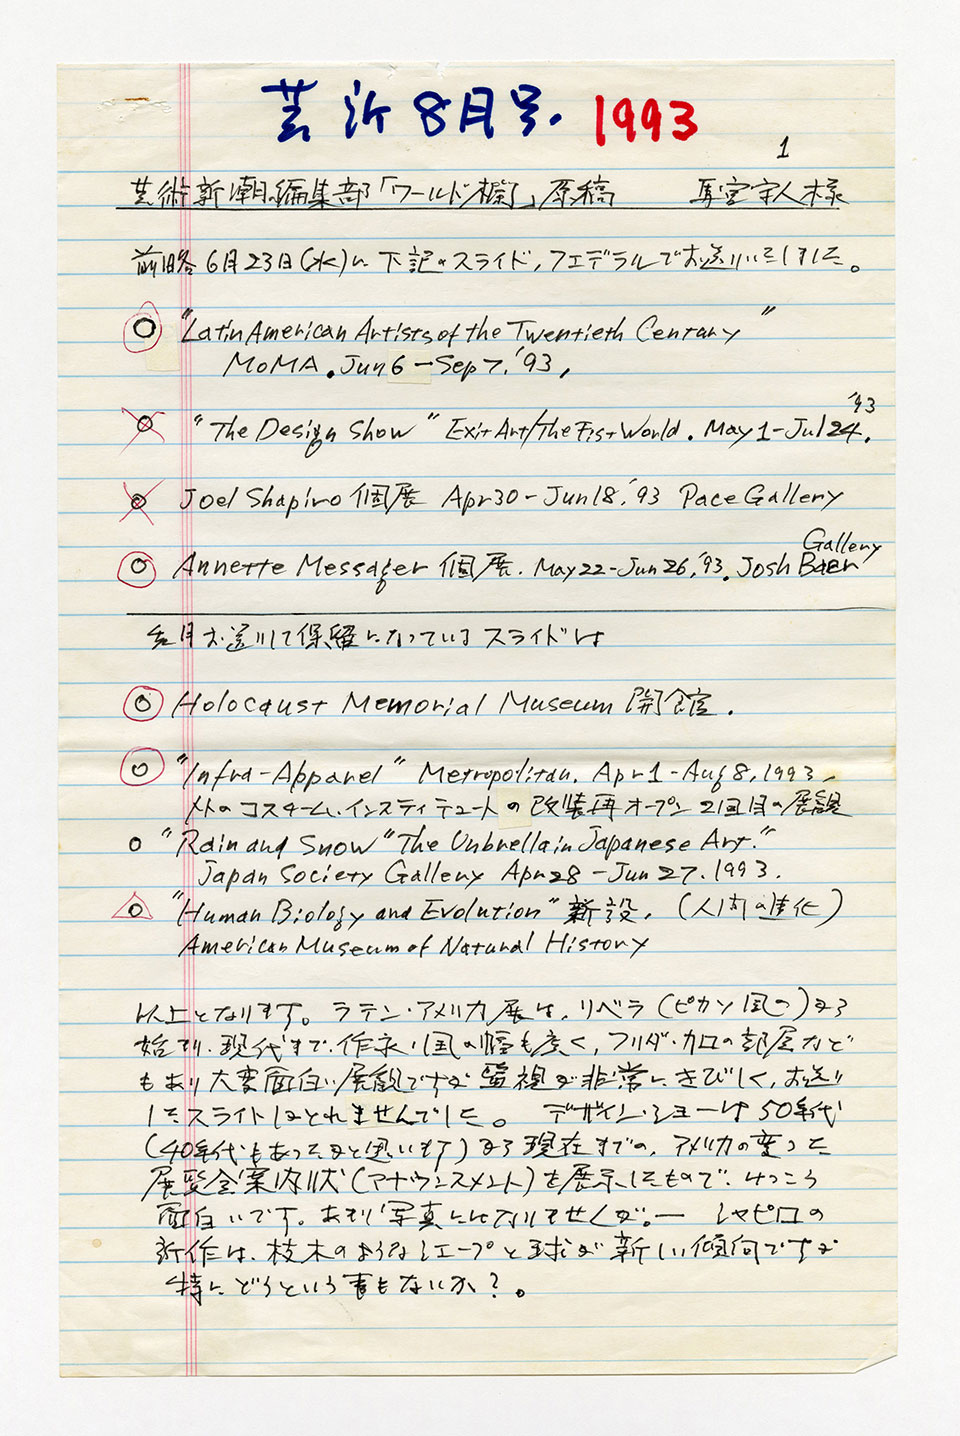 芸新8月号. 1993
1
芸術新潮編集部「ワールド欄」原稿 馬宮宇人様
前略6月23日(水)に下記のスライド,フェデラルでお送りいたしました。
"Latin American Artists of the Twentieth Century"
MoMA. Jun6-Sep7.'93,
'93
"The Design Show" Exit Art/The First World. May 1-Jul 24.
Joel Shapiro 個展 Apr30-Jun18,'93 Pace Gallery
Gallery
Annette Messager 個展. May22-Jun26,'93. Josh Baer
先月お送りして保留になっているスライドは
Holocaust Memorial Museum 開館.
"Infra-Apparel" Metropolitan. Apr1-Aug8,1993,
コスチューム,インスティテュートの改装再オープン2回目の展覧
"Rain and Snow" "The Umbrella in Japanese Art."
Japan Society Gallery Apr28-Jun27.1993.
"Human Biology and Evolution" 新設.(人間の進化)
American Museum of Natural History
以上となります。ラテン・アメリカ展は,リベラ(ピカソ風の)から
始まり,現代まで,作家,国の幅も広く,フリダ・カロの部屋など
もあり大変面白い展観ですが監視が非常にきびしく,お送り
したスライドしかとれませんでした。デザイン・ショーは50年代
(40年代もあったかと思います)から現在までの,アメリカの変った
展覧会案内状(アナウンスメント)を展示したもので,けっこう
面白いです。あまり写真にはなりませんが。— シャピロの
新作は,枝木のようなシェープと球が新しい傾向ですが
特にどうという事もないか?。